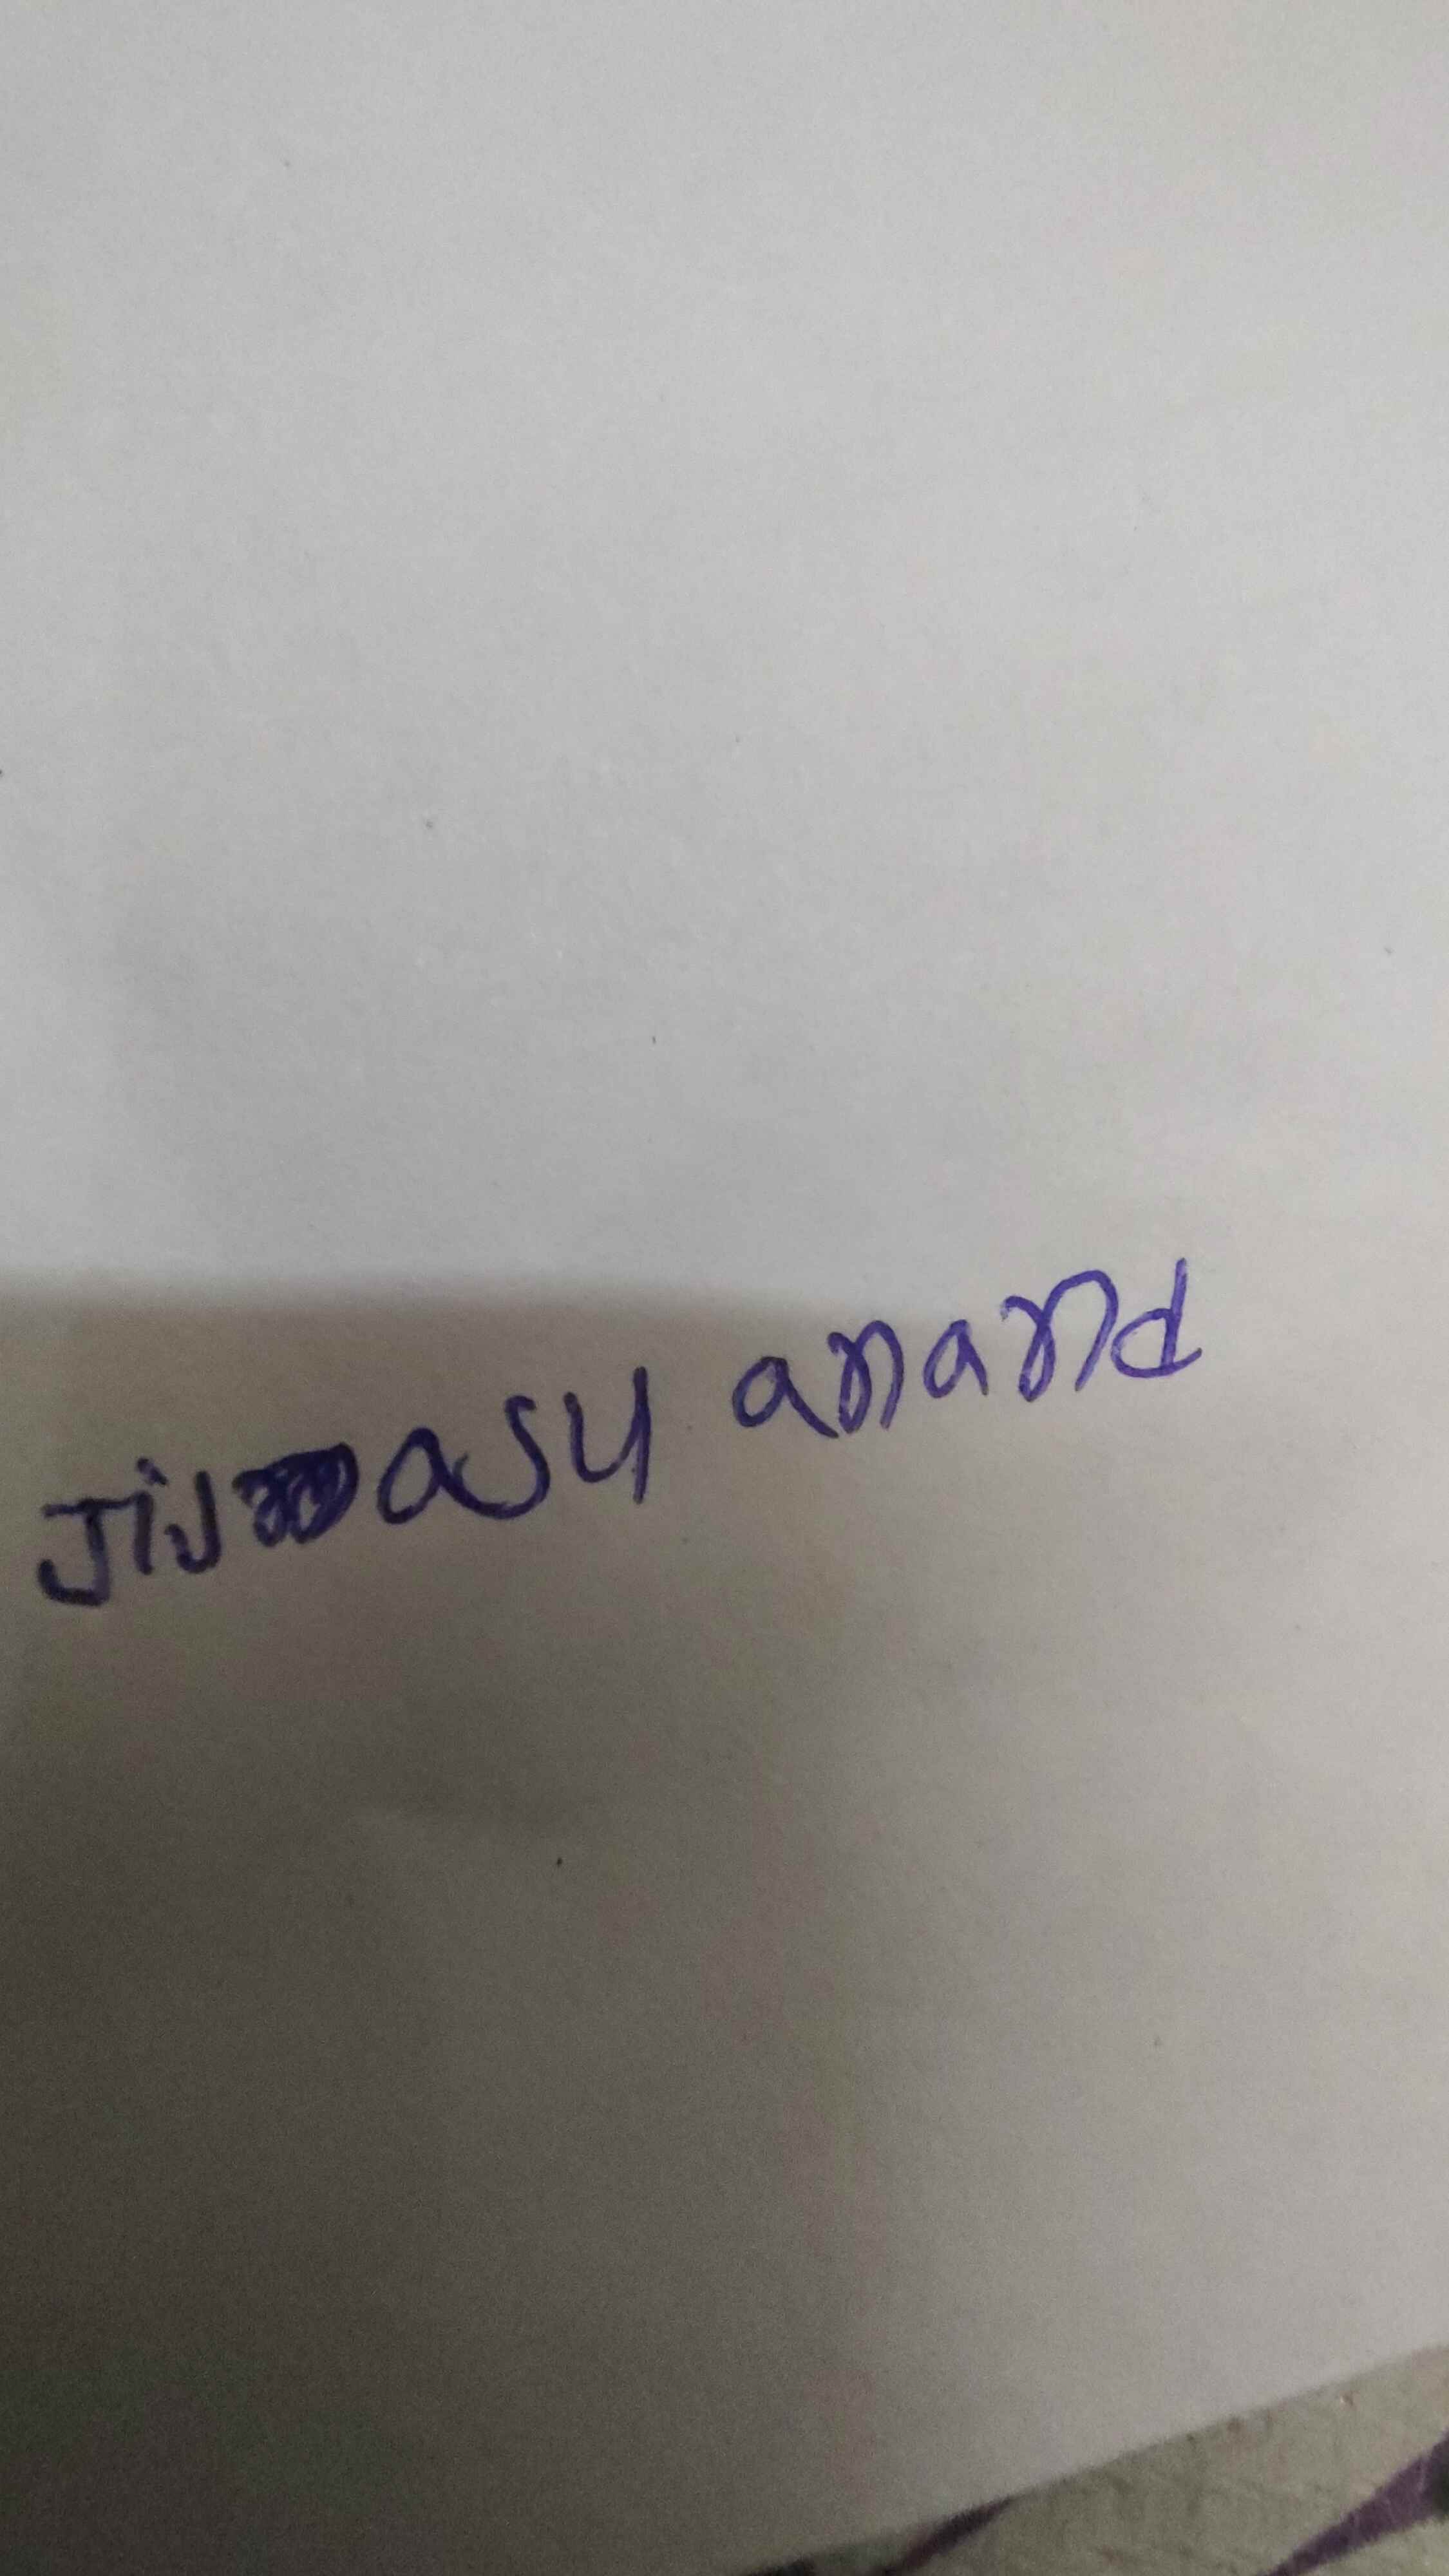 Jijasu anand